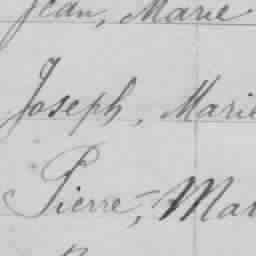 Jean, Marie
Joseph, Marie
Pierre, Mar